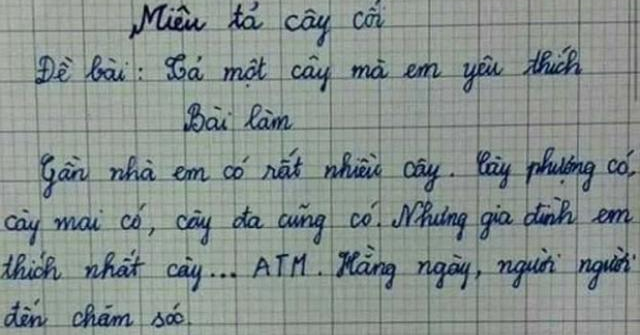 Miêu tả cây cối
Đề bài : Tả một cây mà em yêu thích
Bài làm
Gần nhà em có rất nhiều cây. Cây phượng có,
cây mai có, cây đa cũng có. Nhưng gia đình em
thích nhất cây... ATM. Hằng ngày, người người
đến chăm sóc.